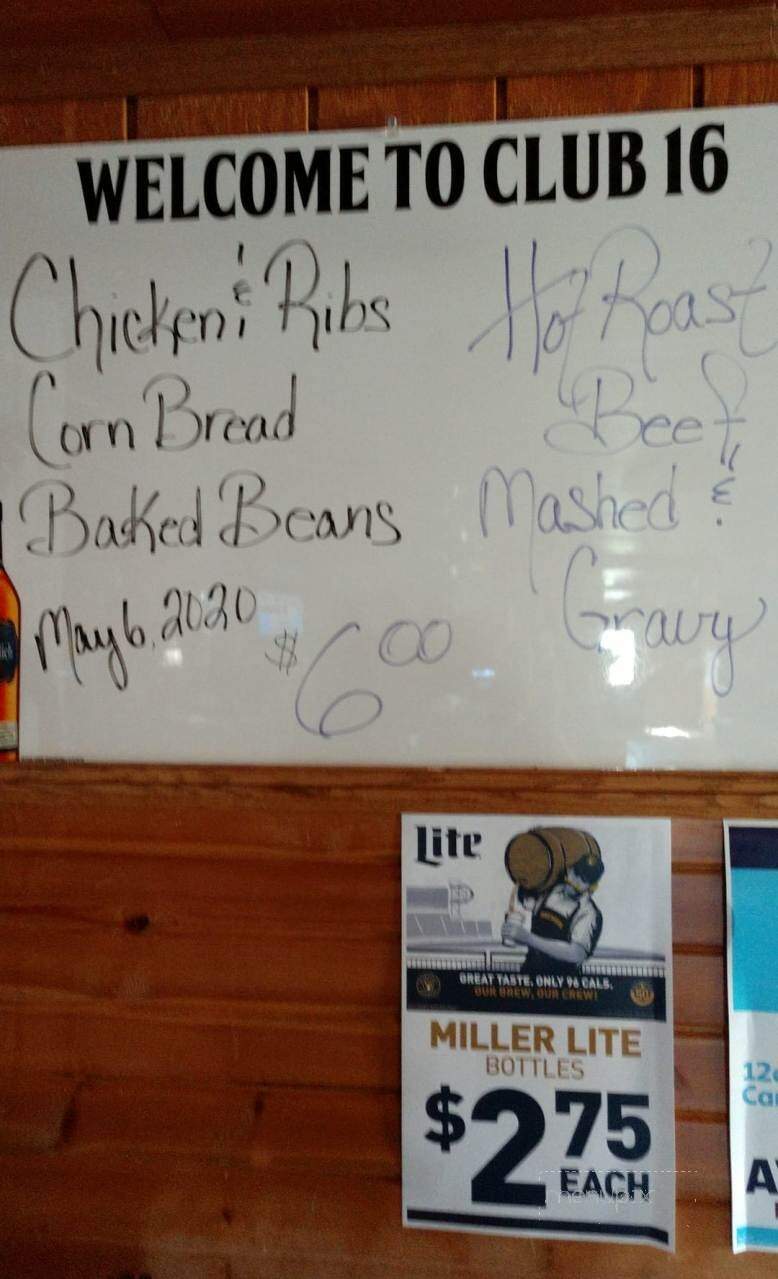 WELCOME TO CLUB 16
Chicken & Ribs
Corn Bread
Baked Beans
May 6, 2020
$6.00
Hot Roast
Beef
Mashed &
Gravy
Lite
GREAT TASTE. ONLY 96 CALS.
OUR BREW, OUR CREW!
MILLER LITE
BOTTLES
$2.75
EACH
menupix
12
Ca
A